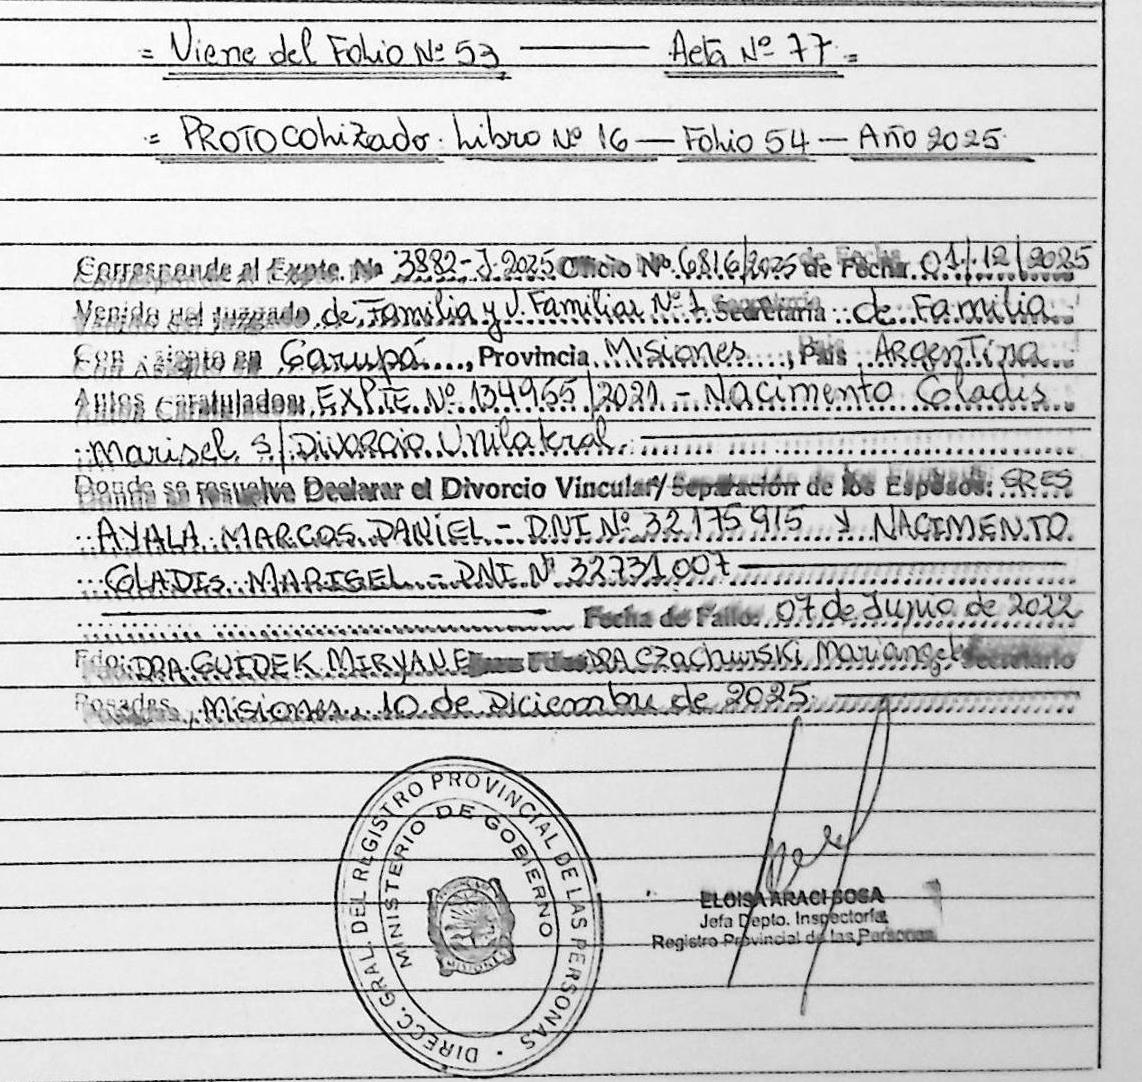 = Viene del Folio Nº 53 ——— Acta Nº 77 =
= PROTOCOLIZADO. Libro Nº 16 — Folio 54 — Año 2025
Corresponde al Expte. Nº 3882-J-2025 Oficio Nº 6816/2025 de Fecha 01/12/2025
Venido del Juzgado de Familia y V. Familiar Nº 1 Secretaria de Familia
Con Asiento en Garupá, Provincia Misiones, Pais Argentina
Autos Caratulados: EXPTE. Nº 134965/2021 - Nacimento Gladis
Marisel s/ Divorcio Unilateral.
Donde se resuelve Declarar el Divorcio Vincular/ Separación de los Esposos: SRES
AYALA MARCOS DANIEL - DNI Nº 32.175.915 y NACIMENTO
GLADIS MARISEL - DNI Nº 32731.007
Fecha de Fallo: 07 de Junio de 2022
Fdo: DRA GUIDEK MIRYAN E DRA Czachurski Mariangel Secretario
Posadas, Misiones, 10 de Diciembre de 2025
DIRECC. GRAL. DEL REGISTRO PROVINCIAL DE LAS PERSONAS
MINISTERIO DE GOBIERNO
MISIONES
ELOISA ARACI SOSA
Jefa Depto. Inspectoría
Registro Provincial de las Personas